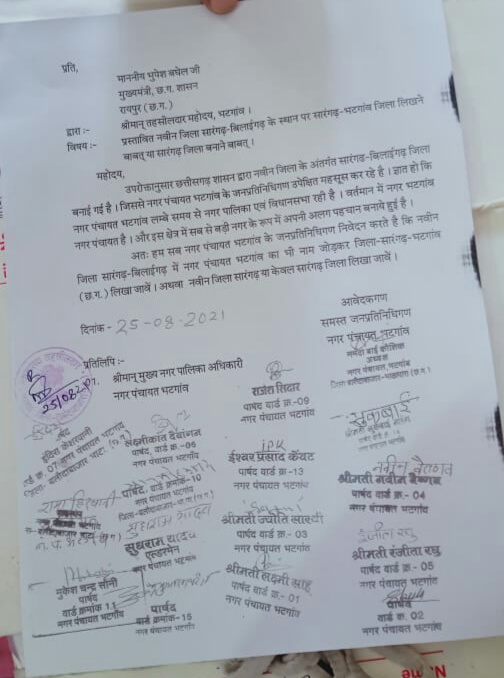 प्रति,
माननीय भुपेश बघेल जी
मुख्यमंत्री, छ.ग. शासन
रायपुर (छ.ग.)
द्वारा :- श्रीमान् तहसीलदार महोदय, भटगांव ।
विषय :- प्रस्तावित नवीन जिला सारंगढ़-बिलाईगढ़ के स्थान पर सारंगढ़-भटगांव जिला लिखने
बाबत् या सारंगढ़ जिला बनाने बाबत् ।
महोदय,
उपरोक्तानुसार छत्तीसगढ़ शासन द्वारा नवीन जिला के अंतर्गत सारंगढ़-बिलाईगढ़ जिला
बनाई गई है । जिससे नगर पंचायत भटगांव के जनप्रतिनिधिगण उपेक्षित महसूस कर रहे है । ज्ञात हो कि
नगर पंचायत भटगांव लम्बे समय से नगर पालिका एवं विधानसभा रही है । वर्तमान में नगर भटगांव
नगर पंचायत है । और इस क्षेत्र में सब से बड़ी नगर के रूप में अपनी अलग पहचान बनाये हुई है ।
अतः हम सब नगर पंचायत भटगांव के जनप्रतिनिधिगण निवेदन करते है कि नवीन
जिला सारंगढ़-बिलाईगढ़ में नगर पंचायत भटगांव का भी नाम जोड़कर जिला-सारंगढ़-भटगांव
(छ.ग.) लिखा जावें । अथवा नवीन जिला सारंगढ़ या केवल सारंगढ़ जिला लिखा जावें ।
दिनांक - 25-08-2021
आवेदकगण
समस्त जनप्रतिनिधिगण
नगर पंचायत भटगांव
प्रतिलिपि :-
श्रीमान् मुख्य नगर पालिका अधिकारी
नगर पंचायत भटगांव
25/08/2021
अध्यक्ष
नगर पंचायत, भटगांव
राजेश सिदार
पार्षद वार्ड क्र.-09
नगर पंचायत भटगांव
पार्षद
लक्ष्मीकांत देवांगन
पार्षद, वार्ड क्र.-06
नगर पंचायत भटगांव
ईश्वर प्रसाद केंवट
पार्षद वार्ड क्र.-13
नगर पंचायत भटगांव
श्रीमती नवीन वैष्णव
पार्षद वार्ड क्र. -04
नगर पंचायत भटगांव
पार्षद, वार्ड क्रमांक-10
नगर पंचायत भटगांव
सुधराम यादव
एल्डरमेन
नगर पंचायत भटगांव
श्रीमती ज्योति सारथी
पार्षद वार्ड क्र. - 03
नगर पंचायत भटगांव
श्रीमती रंजीता रघु
पार्षद वार्ड क्र. -05
नगर पंचायत भटगांव
मुकेश चन्द्र सोनी
पार्षद
वार्ड क्रमांक 11
नगर पंचायत भटगांव
पार्षद
वार्ड क्रमांक-15
नगर पंचायत भटगांव
श्रीमती लक्ष्मी साहू
पार्षद वार्ड क्र. - 01
नगर पंचायत भटगांव
पार्षद
वार्ड क्र. 02
नगर पंचायत भटगांव